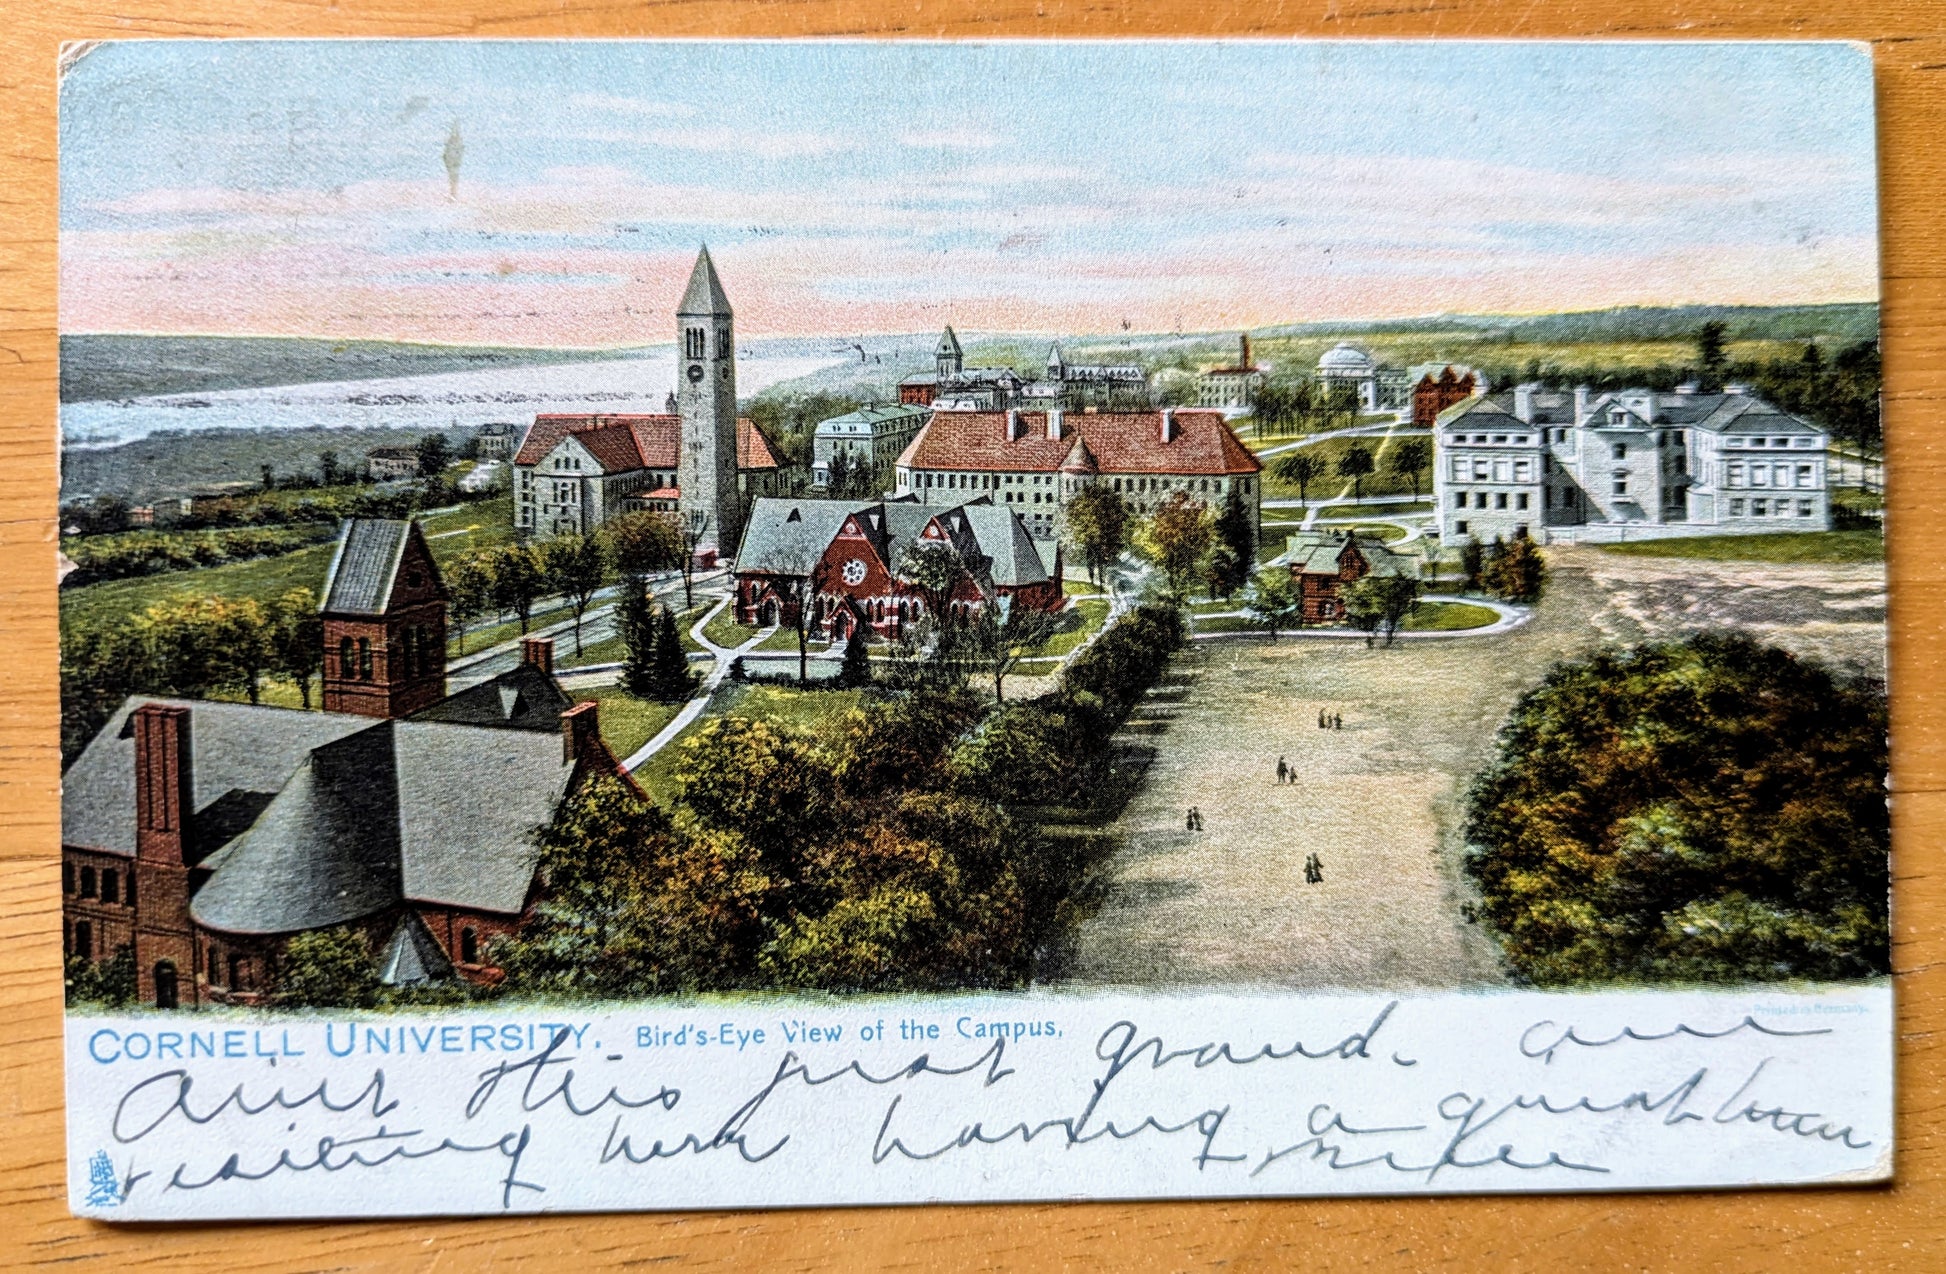 CORNELL UNIVERSITY. Bird's-Eye View of the Campus.
Printed in Germany.
Aint this just grand. am
visiting here having a great time